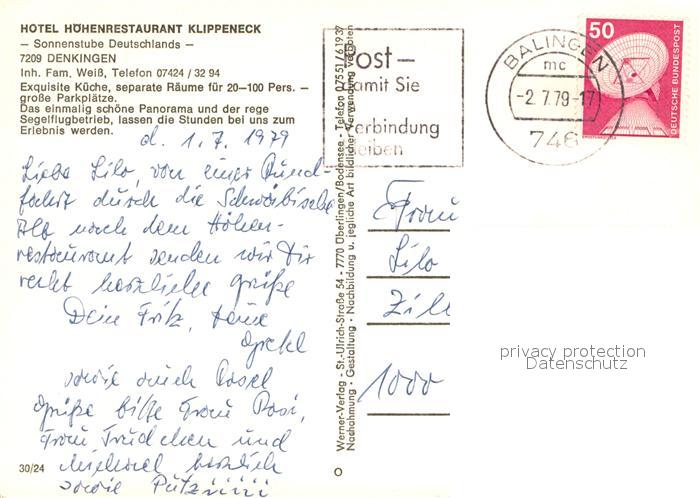 HOTEL HÖHENRESTAURANT KLIPPENECK
— Sonnenstube Deutschlands —
7209 DENKINGEN
Inh. Fam. Weiß, Telefon 07424 / 32 94
Exquisite Küche, separate Räume für 20—100 Pers. —
große Parkplätze.
Das einmalig schöne Panorama und der rege
Segelflugbetrieb, lassen die Stunden bei uns zum
Erlebnis werden.
d. 1. 7. 1979
Liebe Lilo, von einer Rund-
fahrt durch die Schwäbische
Alb nach dem Höhen-
restaurant senden wir Dir
recht herzliche Grüße
Dein Fritz, Tante
Gretel
sowie auch
Grüße bitte Frau Rosi,
Frau Trudchen und
Michael herzlich
sowie
30/24
Werner-Verlag - St.-Ulrich-Straße 54 - 7770 Überlingen/Bodensee - Telefon 07551/61937
Nachahmung - Gestaltung - Nachbildung u. jegliche Art bildlicher Verwendung verboten
Post —
damit Sie
Verbindung
bleiben
BALINGEN
mc
-2.7.79-17
746
50
DEUTSCHE BUNDESPOST
Frau
Lilo
1000
privacy protection
Datenschutz